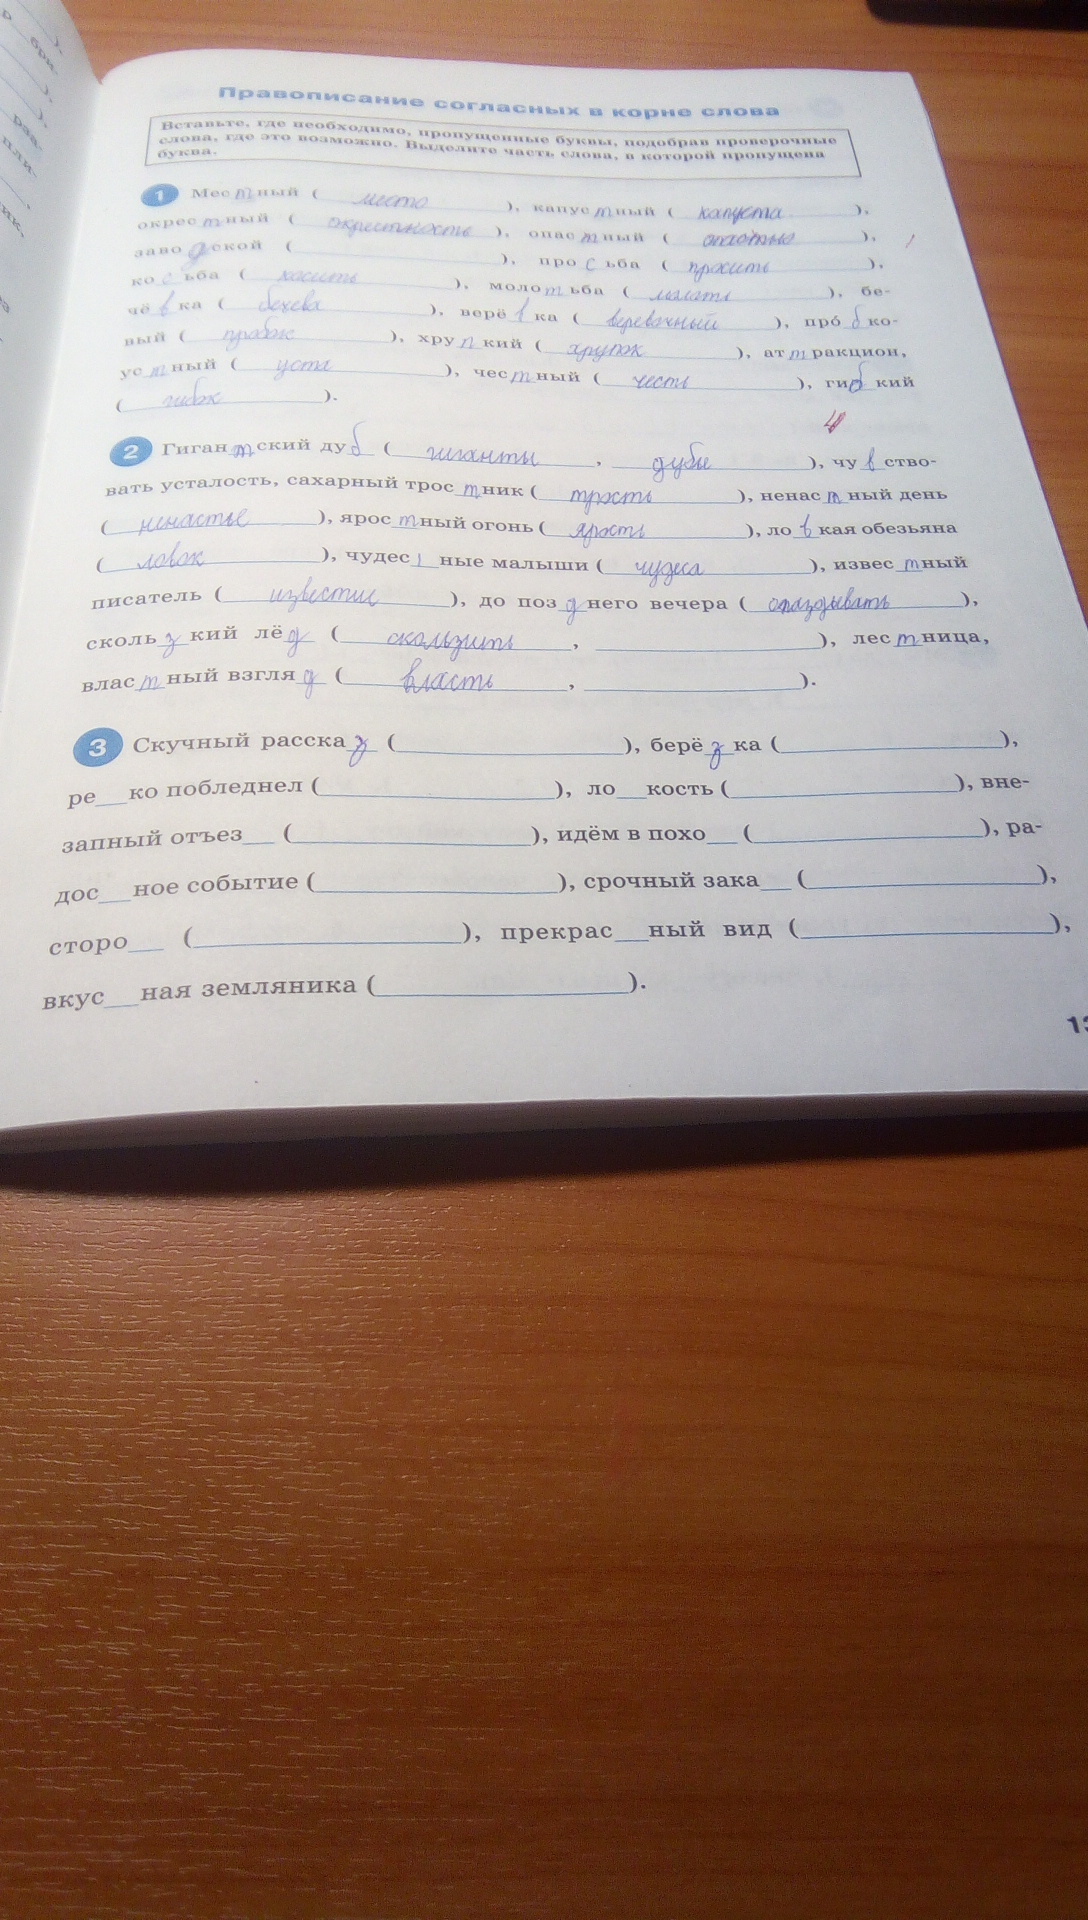 Правописание согласных в корне слова
Вставьте, где необходимо, пропущенные буквы, подобрав проверочные
слова, где это возможно. Выделите часть слова, в которой пропущена
буква.
1 Местный ( место ), капустный ( капуста ),
окрестный ( окрестность ), опастный ( ),
заводской ( ), просьба ( просить ),
косьба ( косить ), молотьба ( ), бе-
чёвка ( бечева ), верёвка ( веревочный ), про́бко-
вый ( пробок ), хрупкий ( хрупок ), аттракцион,
устный ( уста ), честный ( честь ), гибкий
( гибок ).
4
2 Гигантский дуб ( гиганты , дубы ), чувство-
вать усталость, сахарный тростник ( трость ), ненастный день
( ненастье ), яростный огонь ( ярость ), ловкая обезьяна
( ловок ), чудес ные малыши ( чудеса ), известный
писатель ( известие ), до позднего вечера ( опаздывать ),
скользкий лёд ( скользить , ), лестница,
властный взгляд ( власть , ).
3 Скучный рассказ ( ), берёзка ( ),
ре__ко побледнел ( ), ло__кость ( ), вне-
запный отъез__ ( ), идём в похо__ ( ), ра-
дос__ное событие ( ), срочный зака__ ( ),
сторо__ ( ), прекрас__ный вид ( ),
вкус__ная земляника ( ).